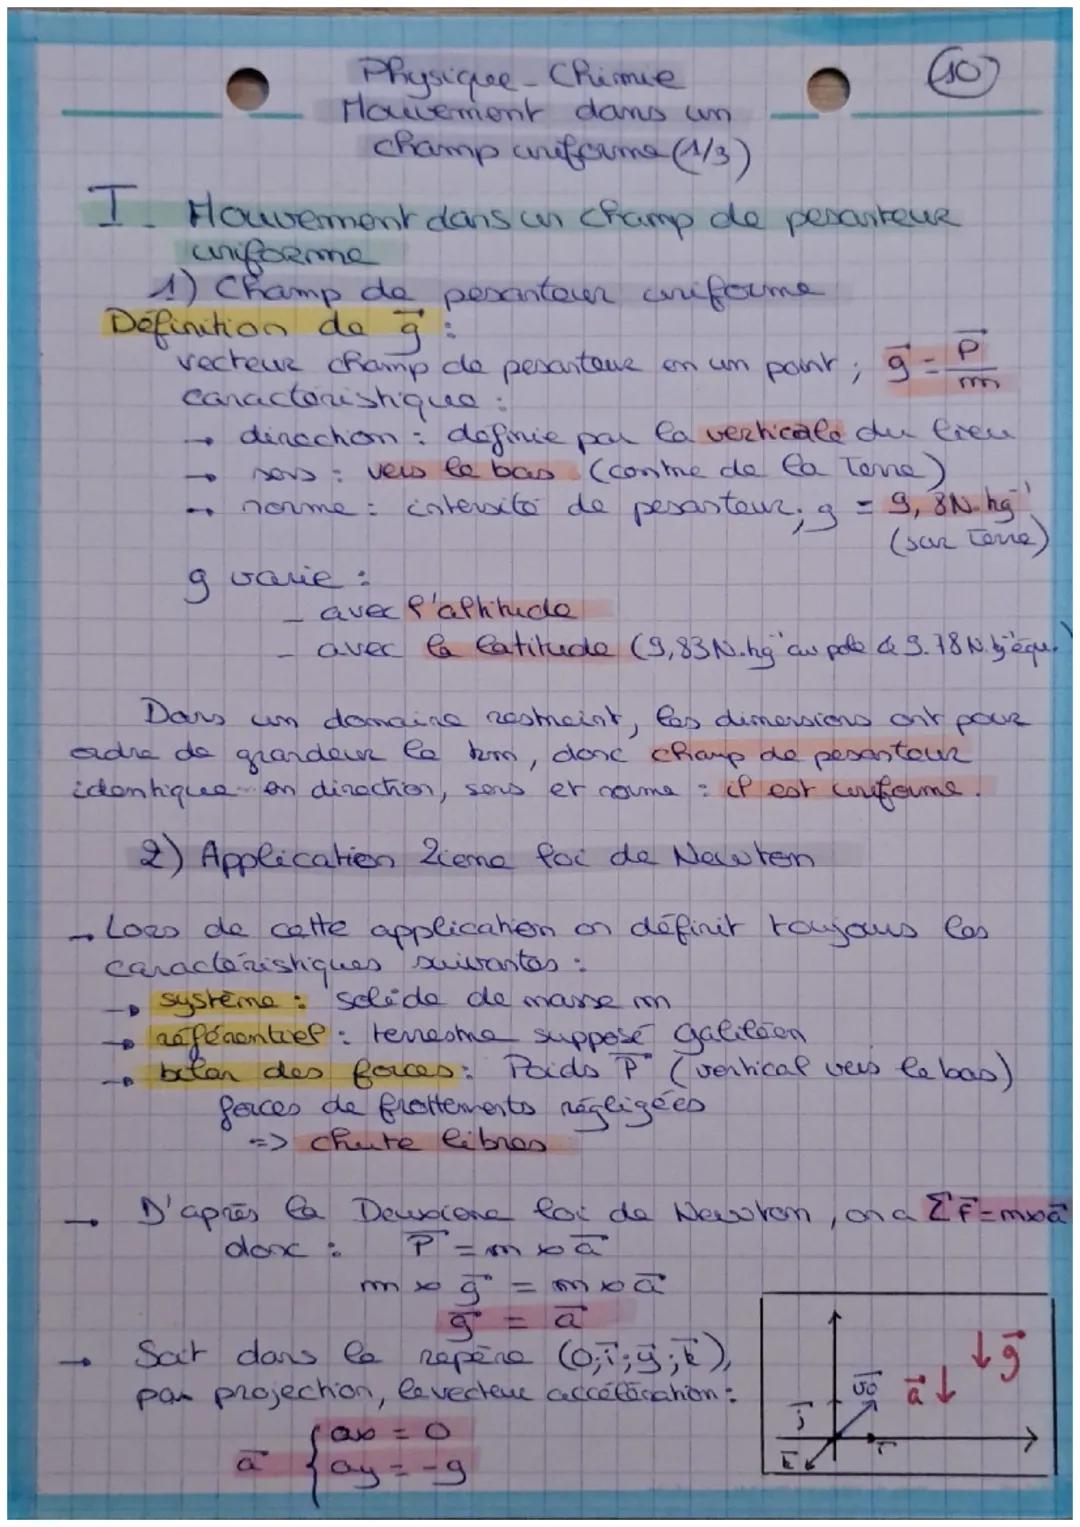 Physique-Chimie
10
Mouvement dans un
champ uniforme (1/3)
I. Mouvement dans un champ de pesanteur
uniforme
1) Champ de pesanteur uniforme
Définition de g⃗ :
vecteur champ de pesanteur en un point ; g⃗ = P⃗/m
caractéristique :
→ direction : définie par la verticale du lieu
→ sens : vers le bas (contre de la Terre)
→ norme : intensité de pesanteur ; g = 9,8N.kg⁻¹
(sur Terre)
g varie :
- avec l'altitude
- avec la latitude (9,83N.kg⁻¹ au pole & 9.78N.kg⁻¹ équ.)
Dans un domaine restreint, les dimensions ont pour
ordre de grandeur le km, donc champ de pesanteur
identique en direction, sens et norme : il est uniforme.
2) Application 2ieme loi de Newton
→ Lors de cette application on définit toujours les
caractéristiques suivantes :
→ système : solide de masse m
→ référentiel : terrestre supposé galiléen
→ bilan des forces : Poids P⃗ (vertical vers le bas)
forces de frottements négligées
=> chute libres
→ D'après la Deuxième loi de Newton, on a ΣF⃗ = m×a⃗
donc : P⃗ = m × a⃗
m × g⃗ = m × a⃗
g⃗ = a⃗
→ Soit dans le repère (O;i⃗;j⃗;k⃗),
par projection, le vecteur accélération :
a⃗ { ax = 0
ay = -g
j⃗
k⃗
i⃗
v₀⃗
a⃗ ↓
↓ g⃗